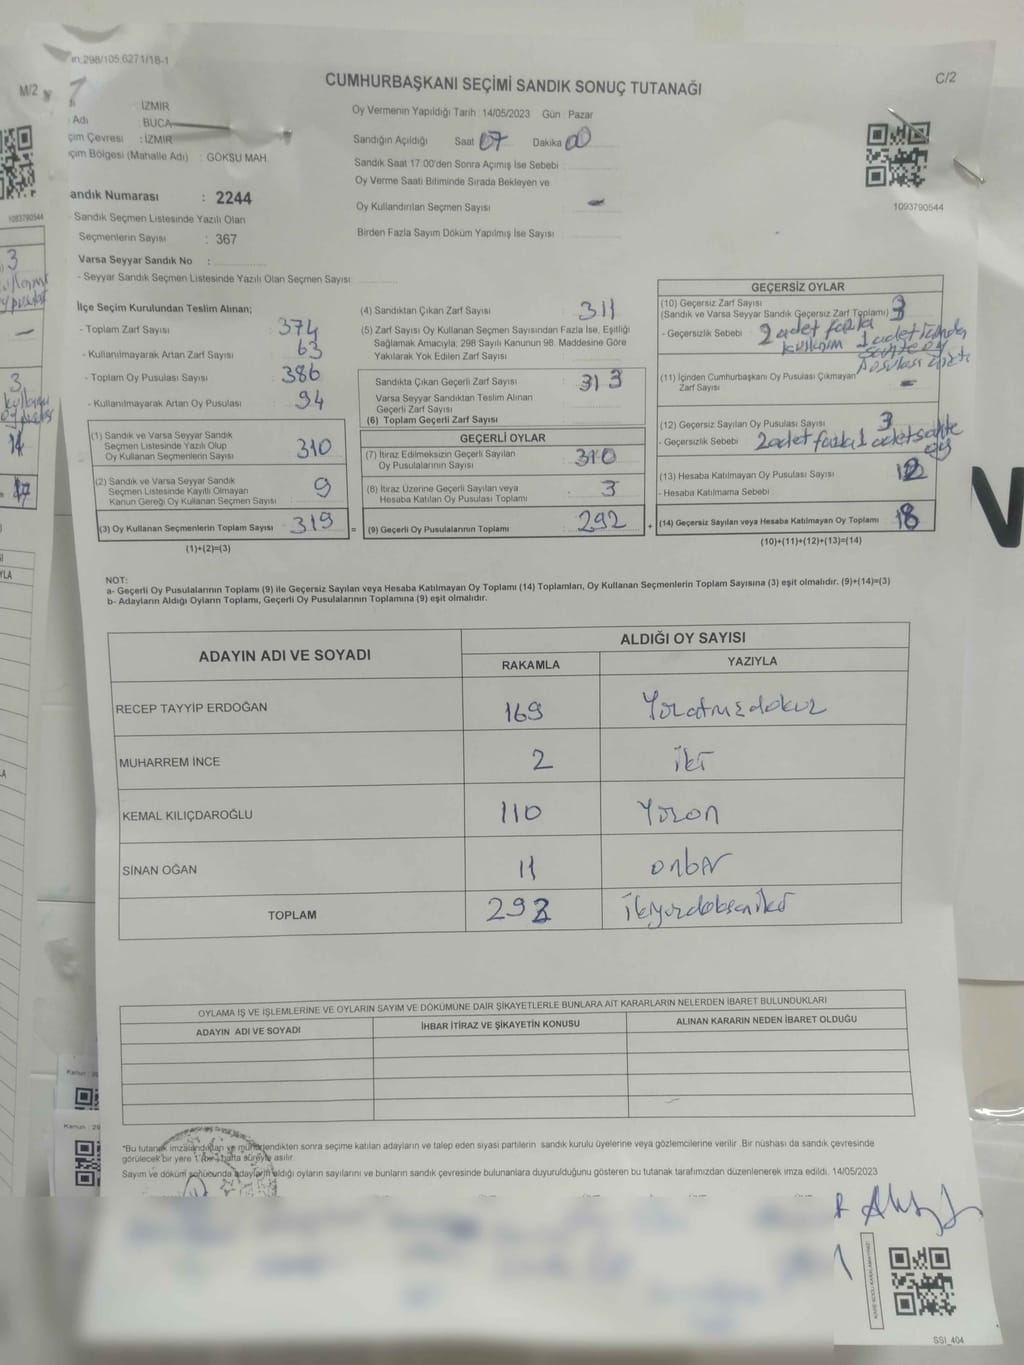 CUMHURBAŞKANI SEÇİMİ SANDIK SONUÇ TUTANAĞI
C/2
M/2
İZMİR
Adı BUCA
çim Çevresi : İZMİR
çim Bölgesi (Mahalle Adı) : GÖKSU MAH.
andık Numarası : 2244
Sandık Seçmen Listesinde Yazılı Olan
Seçmenlerin Sayısı : 367
Varsa Seyyar Sandık No :
- Seyyar Sandık Seçmen Listesinde Yazılı Olan Seçmen Sayısı:
Oy Vermenin Yapıldığı Tarih : 14/05/2023 Gün : Pazar
Sandığın Açıldığı Saat 07 Dakika 00
Sandık Saat 17:00'den Sonra Açımış İse Sebebi
Oy Verme Saati Bitiminde Sırada Bekleyen ve
Oy Kullandırılan Seçmen Sayısı -
Birden Fazla Sayım Döküm Yapılmış İse Sayısı
1093790544
1093790544
İlçe Seçim Kurulundan Teslim Alınan;
- Toplam Zarf Sayısı 374
- Kullanılmayarak Artan Zarf Sayısı 63
- Toplam Oy Pusulası Sayısı 386
- Kullanılmayarak Artan Oy Pusulası 94
(1) Sandık ve Varsa Seyyar Sandık
Seçmen Listesinde Yazılı Olup
Oy Kullanan Seçmenlerin Sayısı 310
(2) Sandık ve Varsa Seyyar Sandık
Seçmen Listesinde Kayıtlı Olmayan
Kanun Gereği Oy Kullanan Seçmen Sayısı 9
(3) Oy Kullanan Seçmenlerin Toplam Sayısı 319 =
(1)+(2)=(3)
(4) Sandıktan Çıkan Zarf Sayısı 311
(5) Zarf Sayısı Oy Kullanan Seçmen Sayısından Fazla İse, Eşitliği
Sağlamak Amacıyla; 298 Sayılı Kanunun 98. Maddesine Göre
Yakılarak Yok Edilen Zarf Sayısı
Sandıkta Çıkan Geçerli Zarf Sayısı : 313
Varsa Seyyar Sandıktan Teslim Alınan
Geçerli Zarf Sayısı
(6) Toplam Geçerli Zarf Sayısı
GEÇERLİ OYLAR
(7) İtiraz Edilmeksizin Geçerli Sayılan
Oy Pusulalarının Sayısı : 310
(8) İtiraz Üzerine Geçerli Sayılan veya
Hesaba Katılan Oy Pusulası Toplamı : 3
(9) Geçerli Oy Pusulalarının Toplamı : 292 +
GEÇERSİZ OYLAR
(10) Geçersiz Zarf Sayısı
(Sandık ve Varsa Seyyar Sandık Geçersiz Zarf Toplamı) 3
- Geçersizlik Sebebi : 2 adet fazla
1 adet
(11) İçinden Cumhurbaşkanı Oy Pusulası Çıkmayan
Zarf Sayısı -
(12) Geçersiz Sayılan Oy Pusulası Sayısı 3
- Geçersizlik Sebebi 2 adet fazla 1 adet sahte
oy
(13) Hesaba Katılmayan Oy Pusulası Sayısı
- Hesaba Katılmama Sebebi
(14) Geçersiz Sayılan veya Hesaba Katılmayan Oy Toplamı : 18
(10)+(11)+(12)+(13)=(14)
NOT:
a- Geçerli Oy Pusulalarının Toplamı (9) ile Geçersiz Sayılan veya Hesaba Katılmayan Oy Toplamı (14) Toplamları, Oy Kullanan Seçmenlerin Toplam Sayısına (3) eşit olmalıdır. (9)+(14)=(3)
b- Adayların Aldığı Oyların Toplamı, Geçerli Oy Pusulalarının Toplamına (9) eşit olmalıdır.
ADAYIN ADI VE SOYADI
ALDIĞI OY SAYISI
RAKAMLA YAZIYLA
RECEP TAYYİP ERDOĞAN 169 Yüzatmışdokuz
MUHARREM İNCE 2 iki
KEMAL KILIÇDAROĞLU 110 Yüzon
SİNAN OĞAN 11 onbir
TOPLAM 292 ikiyüzdoksaniki
OYLAMA İŞ VE İŞLEMLERİNE VE OYLARIN SAYIM VE DÖKÜMÜNE DAİR ŞİKAYETLERLE BUNLARA AİT KARARLARIN NELERDEN İBARET BULUNDUKLARI
ADAYIN ADI VE SOYADI İHBAR İTİRAZ VE ŞİKAYETİN KONUSU ALINAN KARARIN NEDEN İBARET OLDUĞU
*Bu tutanak imzalandıktan ve mühürlendikten sonra seçime katılan adayların ve talep eden siyasi partilerin sandık kurulu üyelerine veya gözlemcilerine verilir .Bir nüshası da sandık çevresinde
görülecek bir yere 1 (bir) hafta süreyle asılır.
Sayım ve döküm sonucunda adayların aldığı oyların sayılarını ve bunların sandık çevresinde bulunanlara duyurulduğunu gösteren bu tutanak tarafımızdan düzenlenerek imza edildi. 14/05/2023
SSI_404